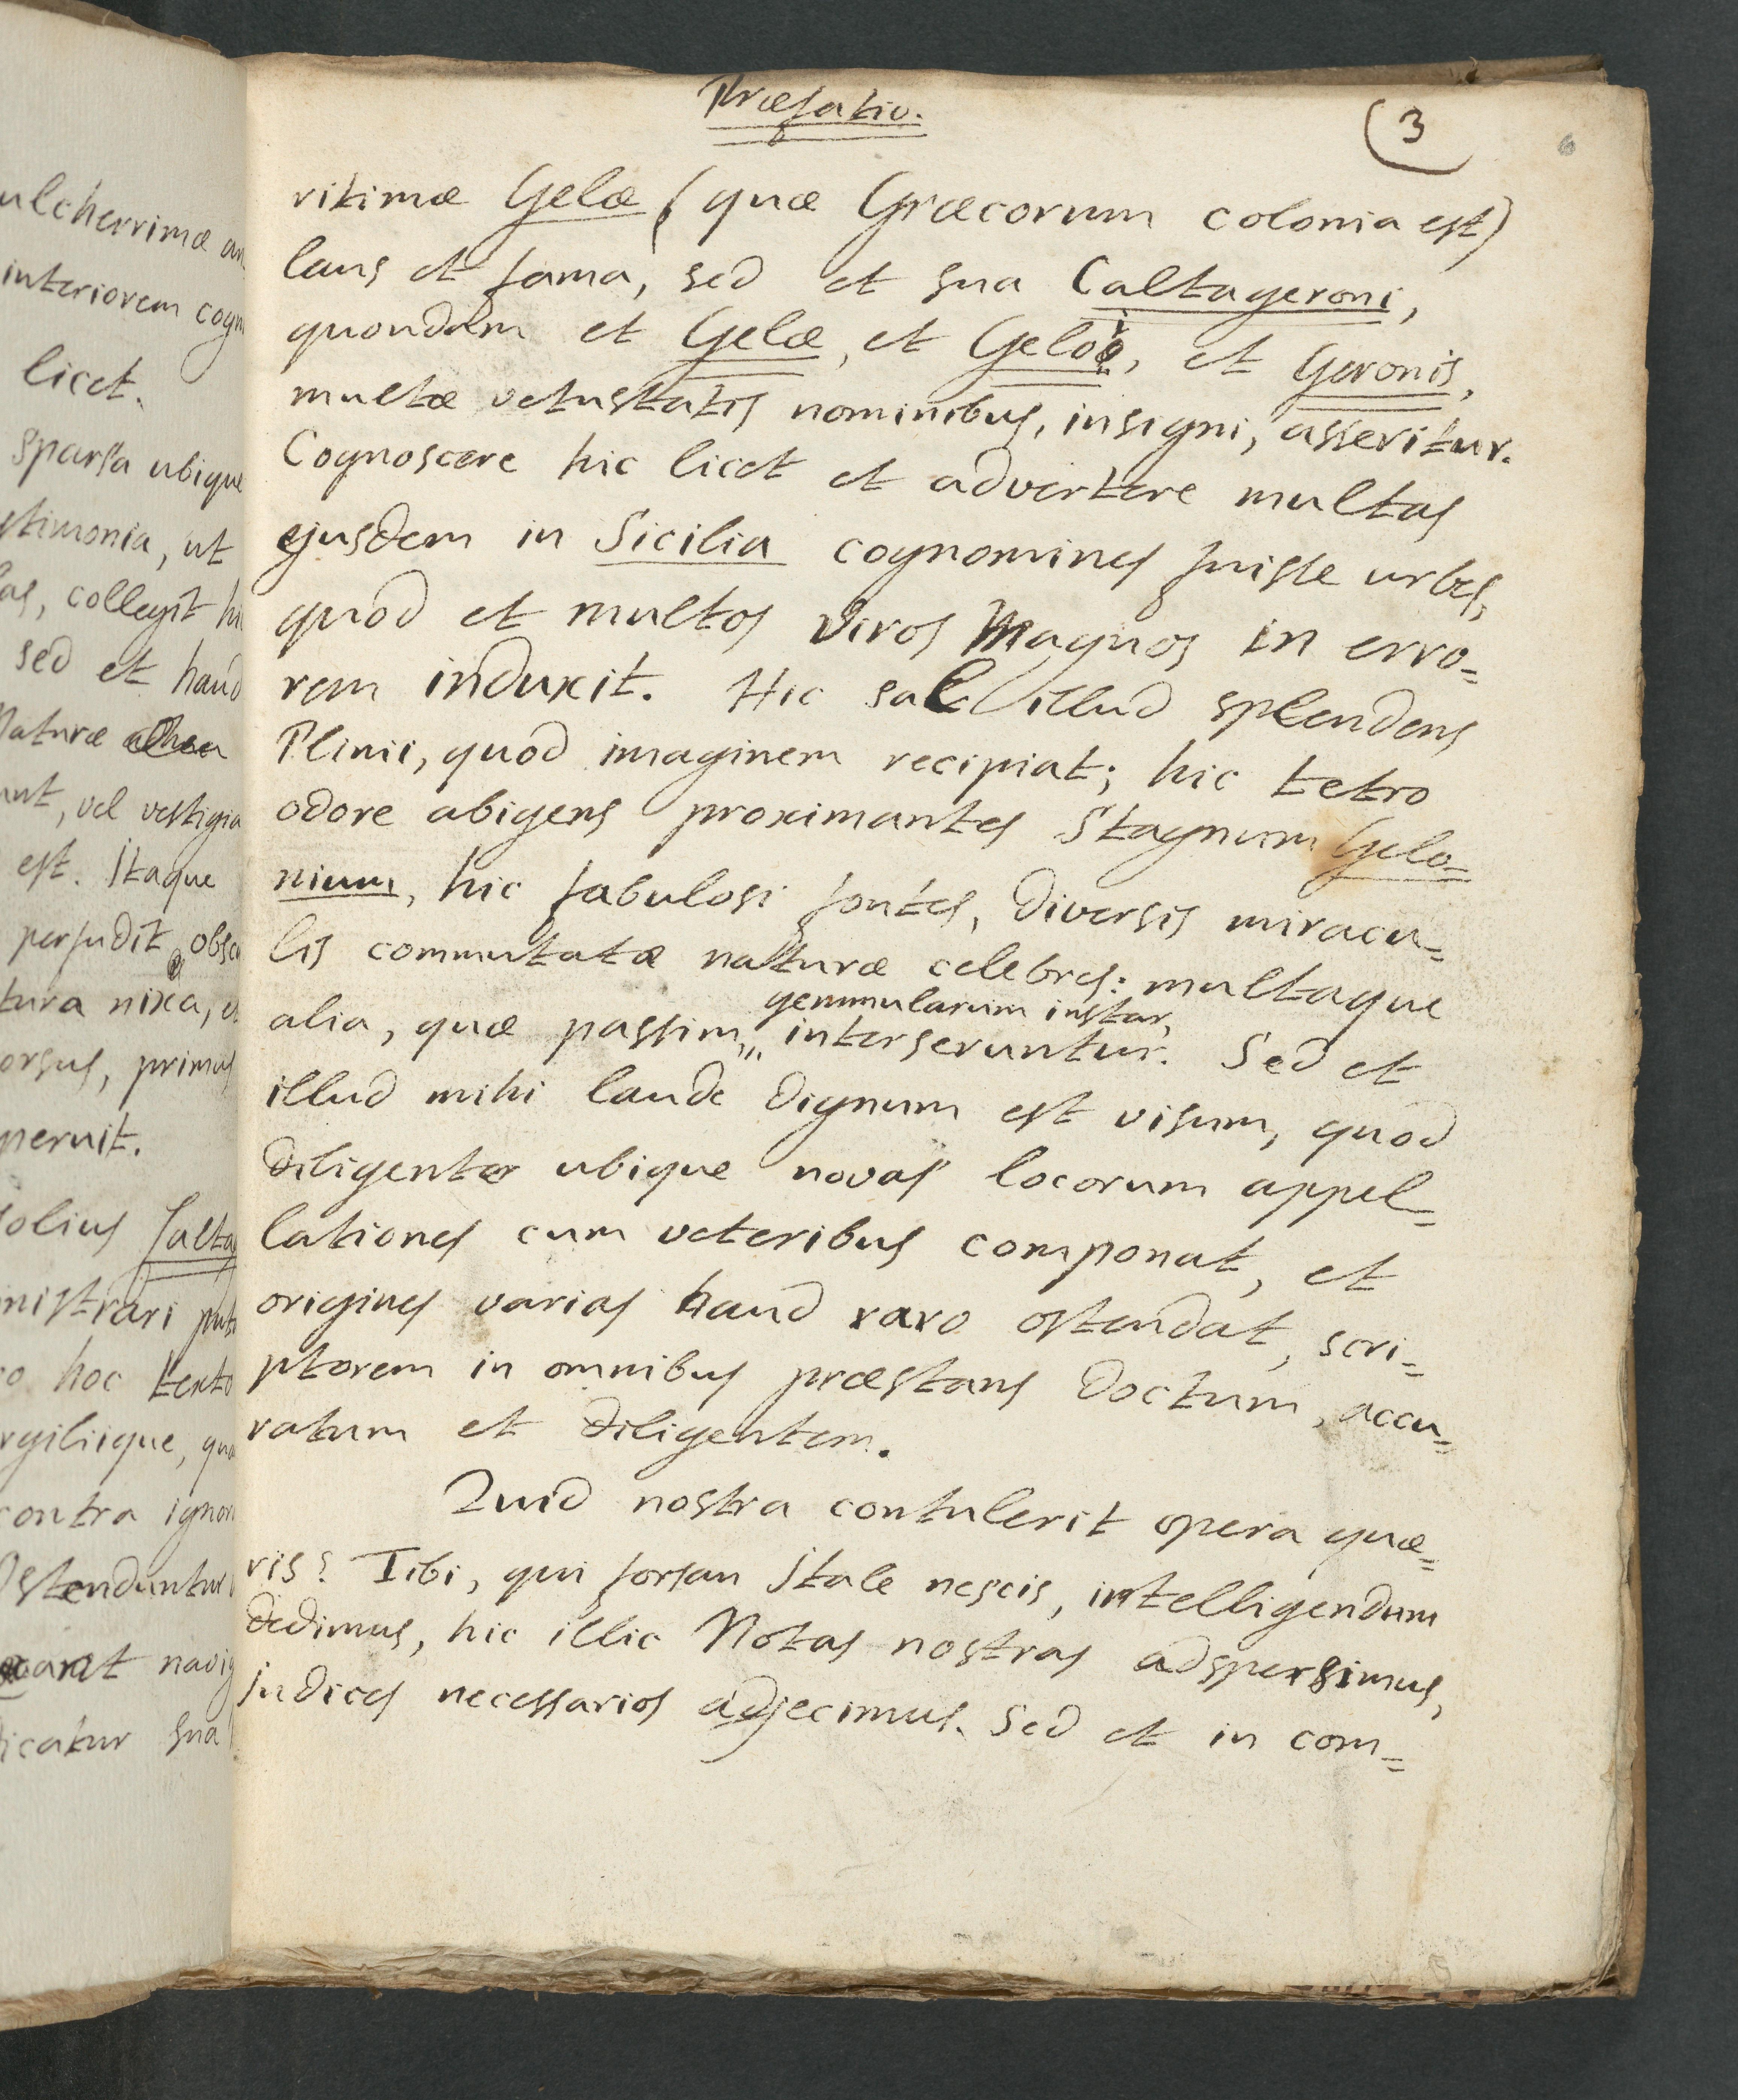 Præfatio.
(3
6
ritimæ Gelæ (quæ Græcorum colonia est)
laus et fama, sed et sua Caltageroni,
quondam et Gelæ, et Geloi, et Geronis,
multæ vetustatis nominibus, insigni, asseritur.
Cognoscere hic licet et advertere multas
ejusdem in Sicilia cognomines fuisse urbes,
quod et multos viros magnos in erro=
rem induxit. Hic sal illud splendens
Plinii, quod imaginem recipiat; hic tetro
odore abigens proximantes Stagnum Gelo=
nium, hic fabulosi fontes, diversis miracu=
lis commutatæ naturæ celebres: multaque
gemmularum instar,
alia, quæ passim,, interseruntur. Sed et
illud mihi laude dignum est visum, quod
diligenter ubique novas locorum appel=
lationes cum veteribus componat, et
origines varias haud raro ostendat, scri=
ptorem in omnibus præstans doctum, accu=
ratum et diligentem.
Quid nostra contulerit opera quæ=
ris? Tibi, qui forsan Itale nescis, intelligendum
dedimus, hic illic Notas nostras adspersimus,
Indices necessarios adjecimus. Sed et in com=
ulcherrimæ
interiorem
licet.
sparsa ubique
stimonia, ut
as, collegit
sed et haud
Naturæ
unt, vel vestigia
est. Itaque
perfudit
tura nixa,
orsus, primus
peruit.
solius
nistrari
hoc
rgiliique,
contra
Ostenduntur
icatur sua